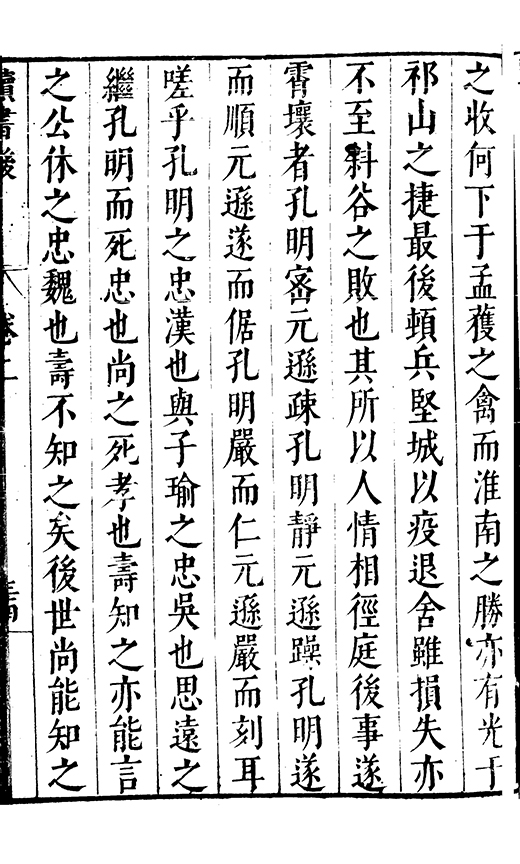 之收何下于孟獲之禽而淮南之勝亦有光于
祁山之捷最後頓兵堅城以疫退舍雖損失亦
不至斜谷之敗也其所以人情相徑庭後事遂
霄壤者孔明宻元遜疎孔明靜元遜躁孔明遂
而順元遜遂而倨孔明嚴而仁元遜嚴而刻耳
嗟乎孔明之忠漢也與子瑜之忠吳也思遠之
繼孔明而死忠也尚之死孝也壽知之亦能言
之公休之忠魏也壽不知之矣後世尚能知之
讀書後
卷二